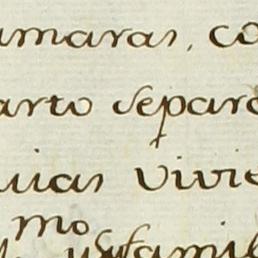 amaras, co
arto separa
uias vivie
mo
y su famil